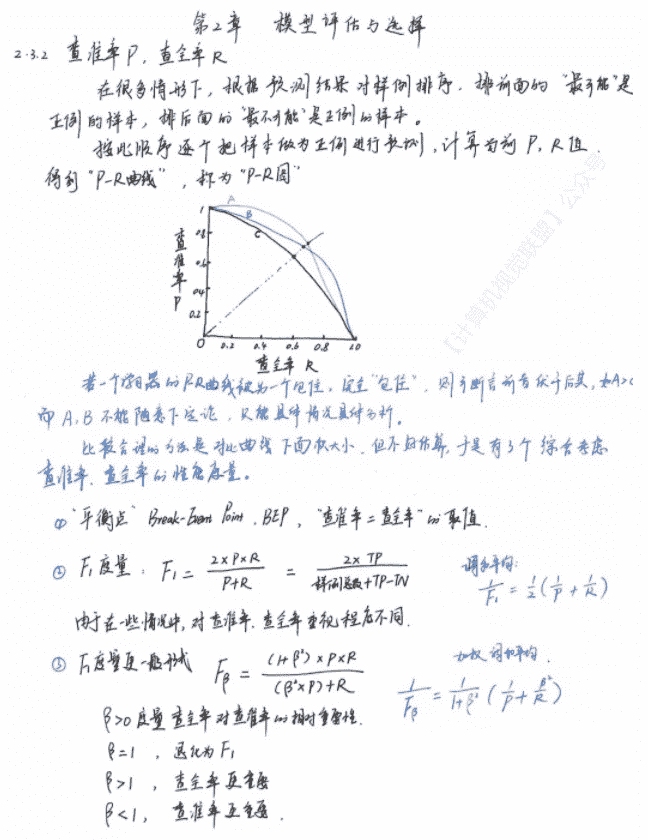 第2章 模型评估与选择
2.3.2 查准率P,查全率R
在很多情形下,根据预测结果对样例排序.排前面的"最可能"是
正例的样本,排后面的"最不可能"是正例的样本。
按此顺序逐个把样本做为正例进行预测,计算当前P,R值
得到"P-R曲线",称为"P-R图"
【计算机视觉联盟】公众号
查准率P
1
0.8
0.6
0.4
0.2
0
A
B
C
0.2 0.4 0.6 0.8 1.0
查全率R
若一个学习器的P-R曲线被另一个包住,完全"包住",则可断言前者优于后者,如A>C
而A,B不能随意下定论,只能具体情况具体分析。
比较合理的方法是对比曲线下面积大小,但不好估算,于是有3个综合考虑
查准率、查全率的性能度量。
① "平衡点" Break-Event Point,BEP,"查准率=查全率"的取值.
② F₁度量: F₁ = 2×P×R / (P+R) = 2×TP / (样例总数+TP-TN)
调和平均:
1/F₁ = 1/2 (1/P + 1/R)
由于在一些情况中,对查准率、查全率重视程度不同.
③ F₁度量更一般形式 Fβ = (1+β²)×P×R / ((β²×P)+R)
加权调和平均.
1/Fβ = 1/(1+β²) (1/P + β²/R)
β>0度量查全率对查准率的相对重要性.
β=1,退化为F₁
β>1,查全率更重要
β<1,查准率更重要.